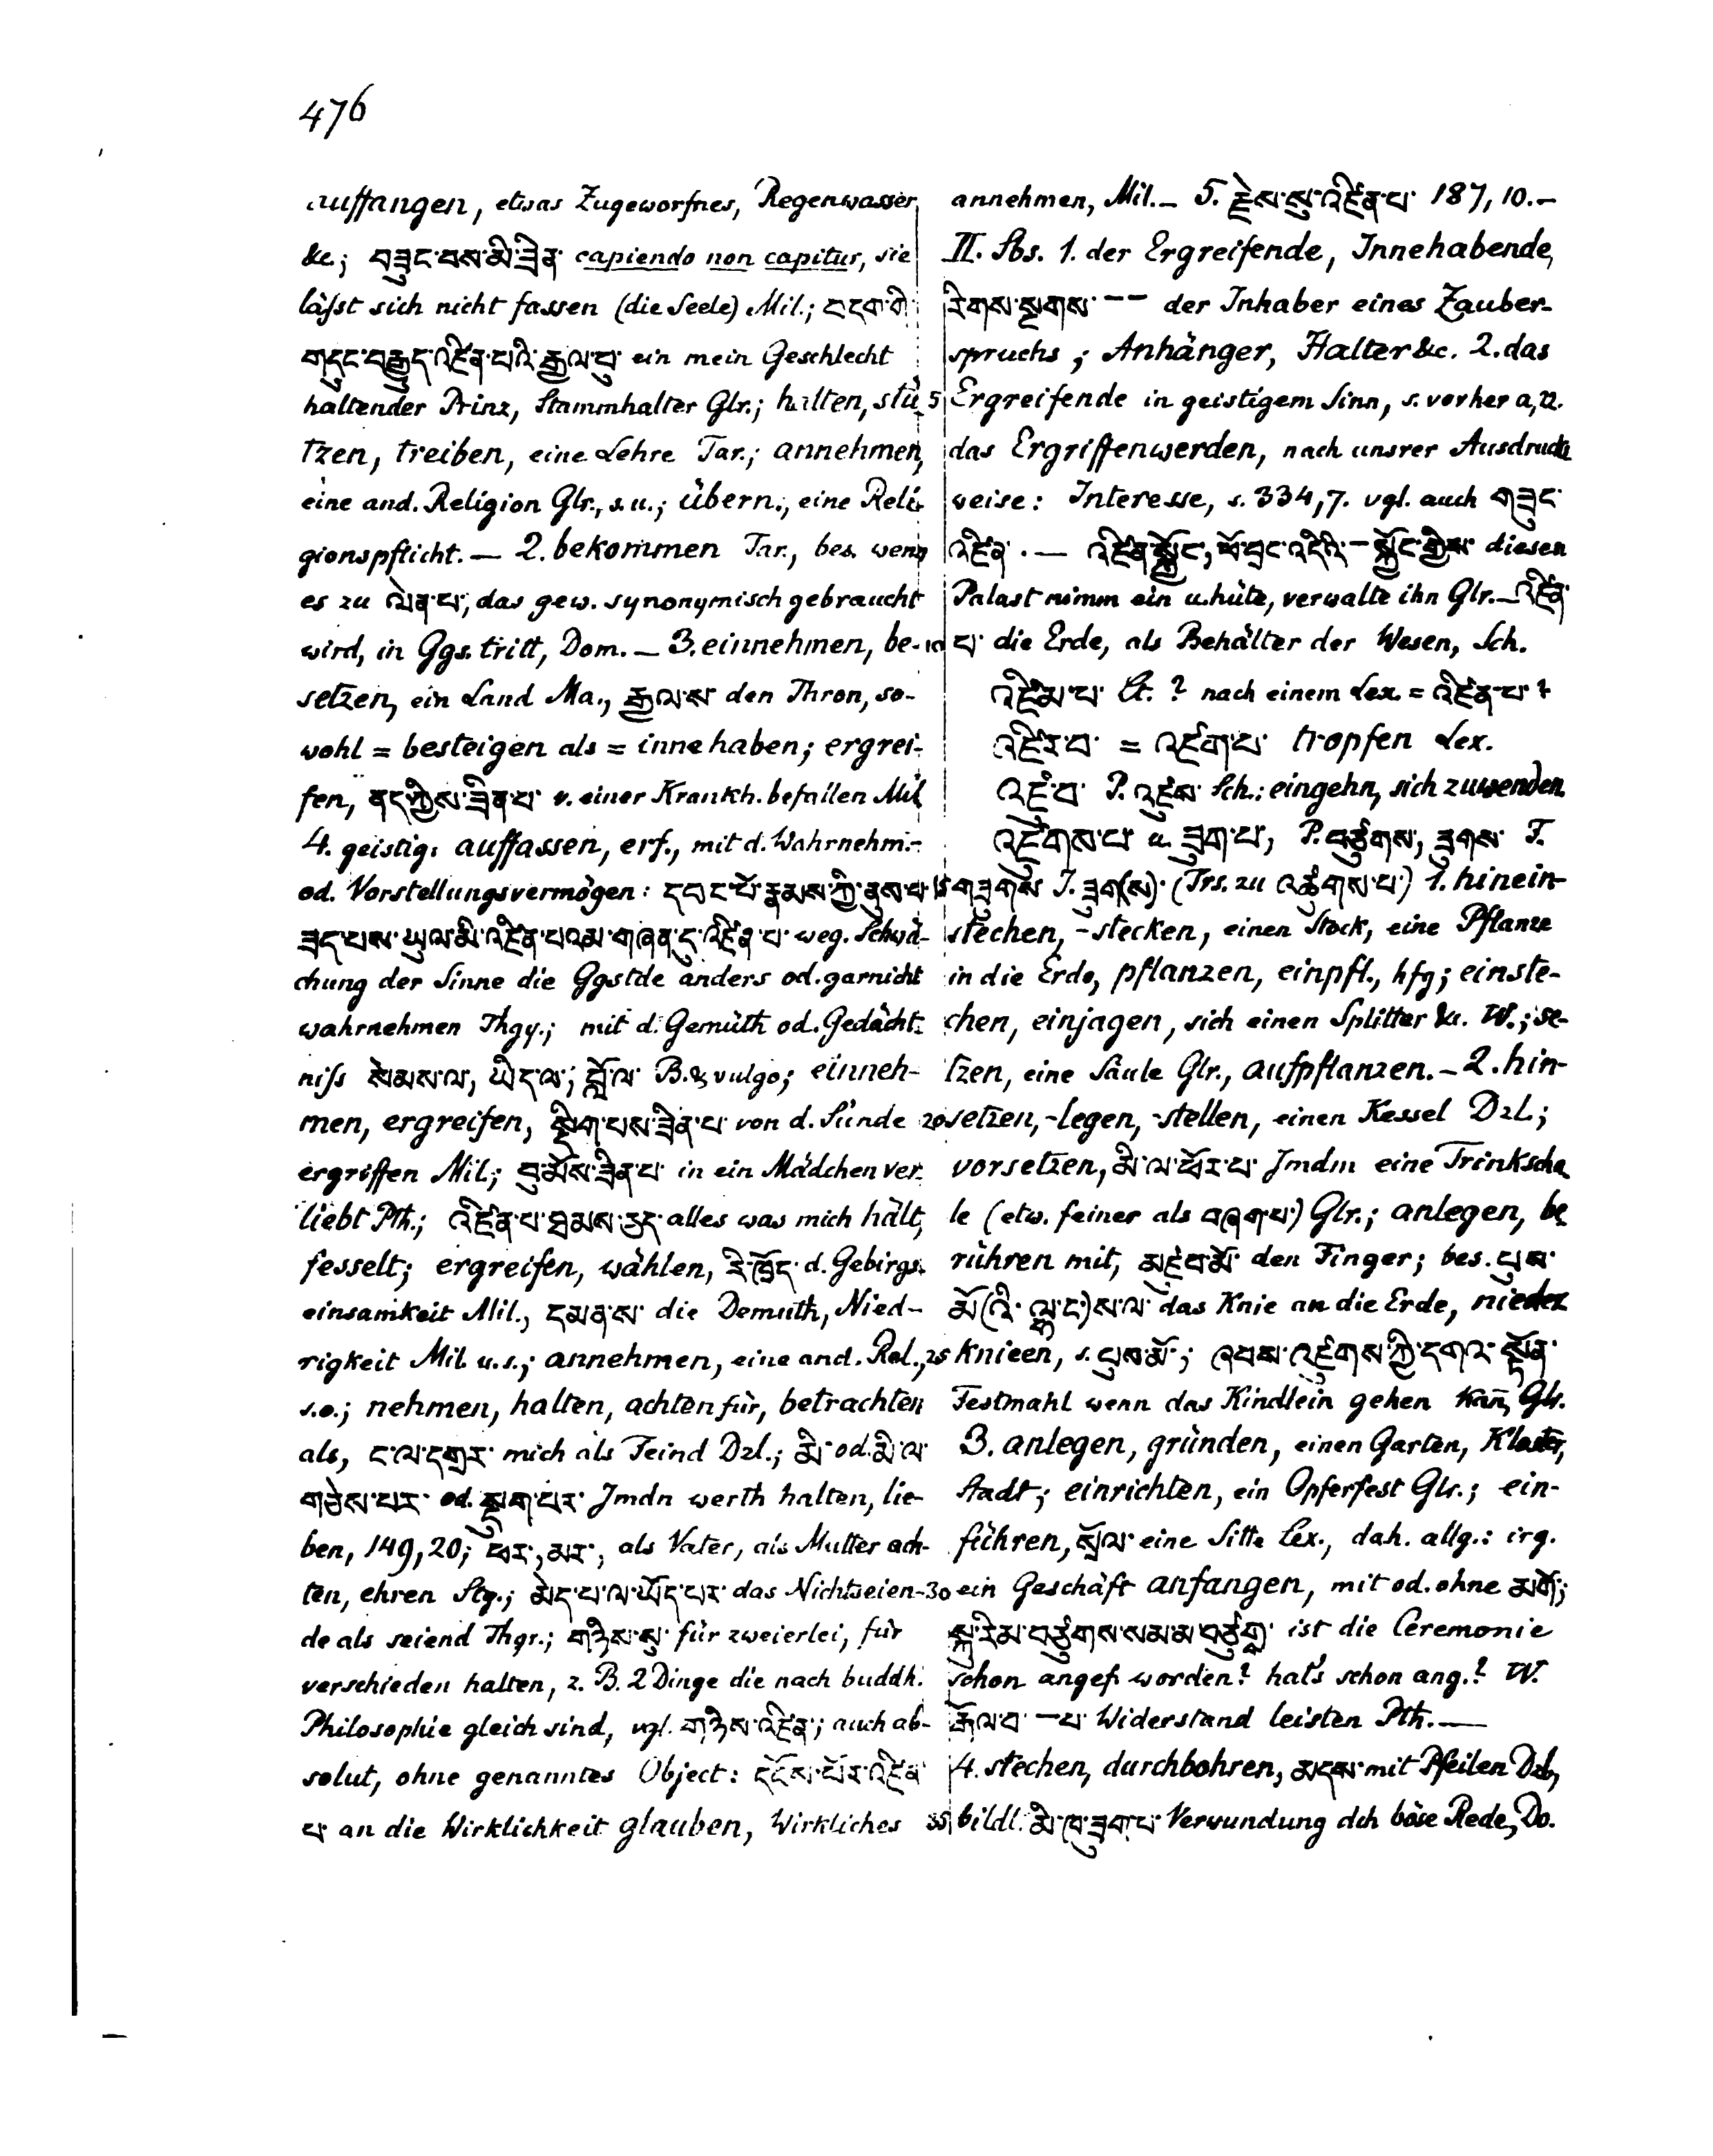 476
auffangen, etwas Zugeworfnes, Regenwasser
&c.; བཟུང་བས་མི་ཟིན་ capiendo non capitur, sie
läſst sich nicht fassen (die Seele) Mil.; བདག་གི་
གདུང་བརྒྱུད་འཛིན་པའི་རྒྱལ་བུ་ ein mein Geschlecht
haltender Prinz, Stammhalter Glr.; halten, stü
tzen, treiben, eine Lehre Tar.; annehmen,
eine and. Religion Glr., s.u.; übern., eine Reli-
gionspflicht. — 2. bekommen Tar., bes. wenn
es zu ལེན་པ་, das gew. synonymisch gebraucht
wird, in Ggs. tritt, Dom. — 3. einnehmen, be-
setzen, ein Land Ma., རྒྱལ་ས་ den Thron, so-
wohl = besteigen als = inne haben; ergrei-
fen, ནད་ཀྱིས་ཟིན་པ་ v. einer Krankh. befallen Mil
4. geistig: auffassen, erf., mit d. Wahrnehm.-
od. Vorstellungsvermögen: དབང་པོ་རྣམས་ཀྱི་ནུས་པ་
ཟད་པས་ཡུལ་མི་འཛིན་པའམ་གཞན་དུ་འཛིན་པ་ weg. Schwä-
chung der Sinne die Ggstde anders od. garnicht
wahrnehmen Thgy.; mit d. Gemüth od. Gedächt-
niſs སེམས་ལ་, ཡིད་ལ་, བློ་ལ་ B. & vulgo; einneh-
men, ergreifen, སྡིག་པས་ཟིན་པ་ von d. Sünde
ergriffen Mil.; བུ་མོས་ཟིན་པ་ in ein Mädchen ver-
liebt Pth.; འཛིན་པ་ཐམས་ཅད་ alles was mich hält,
fesselt; ergreifen, wählen, རི་ཁྲོད་ d. Gebirgs-
einsamkeit Mil., དམན་ས་ die Demuth, Nied-
rigkeit Mil. u.s.; annehmen, eine and. Rel.,
s.o.; nehmen, halten, achten für, betrachten
als, ང་ལ་དགྲར་ mich als Feind Dzl.; མི་ od. མི་ལ་
གཅེས་པར་ od. སྡུག་པར་ Jmdn werth halten, lie-
ben, 149,20; ཕར་, མར་, als Vater, als Mutter ach-
ten, ehren Stg.; མེད་པ་ལ་ཡོད་པར་ das Nichtseien-
de als seiend Thgr.; གཉིས་སུ་ für zweierlei, für
verschieden halten, z. B. 2 Dinge die nach buddh.
Philosophie gleich sind, vgl. གཉིས་འཛིན་; auch ab-
solut, ohne genanntes Object: དངོས་པོར་འཛིན་
པ་ an die Wirklichkeit glauben, Wirkliches
annehmen, Mil. — 5. རྗེས་སུ་འཛིན་པ་ 187, 10. —
II. Sbs. 1. der Ergreifende, Innehabende,
རིགས་སྔགས་ — — der Inhaber eines Zauber-
spruchs; Anhänger, Halter &c. 2. das
5 Ergreifende in geistigem Sinn, s. vorher a, 2.
das Ergriffenwerden, nach unsrer Ausdrucks
weise: Interesse, s. 334, 7. vgl. auch གཟུང་
འཛིན་. — འཛིན་སྐྱོང་, ཕོ་བྲང་འདིའི་ — སྐྱོང་གྱིས་ diesen
Palast nimm ein u. hüte, verwalte ihn Glr. — འཛིན་
10 པ་ die Erde, als Behälter der Wesen, Sch.
འཛིམ་པ་ Ct. ? nach einem Lex. = འཛིན་པ་ ?
འཛིར་བ་ = འཛག་པ་ tropfen Lex.
འཛུ་བ་ P. འཛུས་ Sch.: eingehn, sich zuwenden.
འཛུགས་པ་ u. ཟུག་པ་, P. བཙུགས་, ཟུགས་ F.
15 གཟུགས་ I. ཟུག(ས)་ (Trs. zu འཚུགས་པ་) 1. hinein-
stechen, -stecken, einen Stock, eine Pflanze
in die Erde, pflanzen, einpfl., hfg; einste-
chen, einjagen, sich einen Splitter &c. W.; se-
tzen, eine Säule Glr., aufpflanzen. — 2. hin-
20 setzen, -legen, -stellen, einen Kessel Dzl.;
vorsetzen, མི་ལ་ཕོར་པ་ Jmdm eine Trinkscha
le (etw. feiner als བཞག་པ་) Glr.; anlegen, be
rühren mit, མཛུབ་མོ་ den Finger; bes. པུས་
མོ་(འི་ལྷ་ང་)ས་ལ་ das Knie an die Erde, nieder
25 knieen, s. པུས་མོ་; ཞབས་འཛུགས་ཀྱི་དགའ་སྟོན་
Festmahl wenn das Kindlein gehen kan̄, Glr.
3. anlegen, gründen, einen Garten, Kloster,
Stadt; einrichten, ein Opferfest Glr.; ein-
führen, སྲོལ་ eine Sitte Lex., dah. allg.: irg.
30 ein Geschäft anfangen, mit od. ohne མགོ་;
སྐུ་རིམ་བཙུགས་སམ་མ་བཙུགས་ ist die Ceremonie
schon angef. worden? hat's schon ang.? W.
རྒོལ་བ་ — པ་ Widerstand leisten Pth. —
4. stechen, durchbohren, མདས་ mit Pfeilen Dzl.,
35 bildl. མི་ཁ་ཟུག་པ་ Verwundung dch böse Rede, Do.